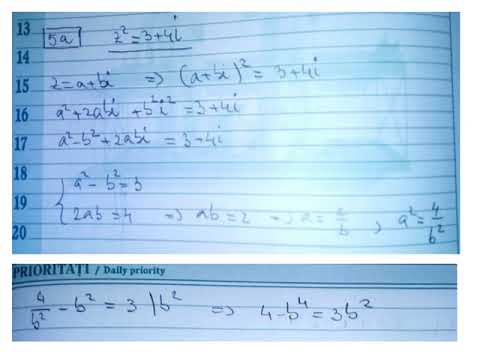 13 5a z² = 3+4i
14
15 z = a+bi ⇒ (a+bi)² = 3+4i
16 a²+2abi+b²i² = 3+4i
17 a²-b²+2abi = 3+4i
18 { a²-b² = 3
19 2ab = 4 ⇒ ab = 2 ⇒ a = 2/b , a² = 4/b²
20
PRIORITAȚI / Daily priority
4/b² - b² = 3 |b² ⇒ 4-b⁴ = 3b²